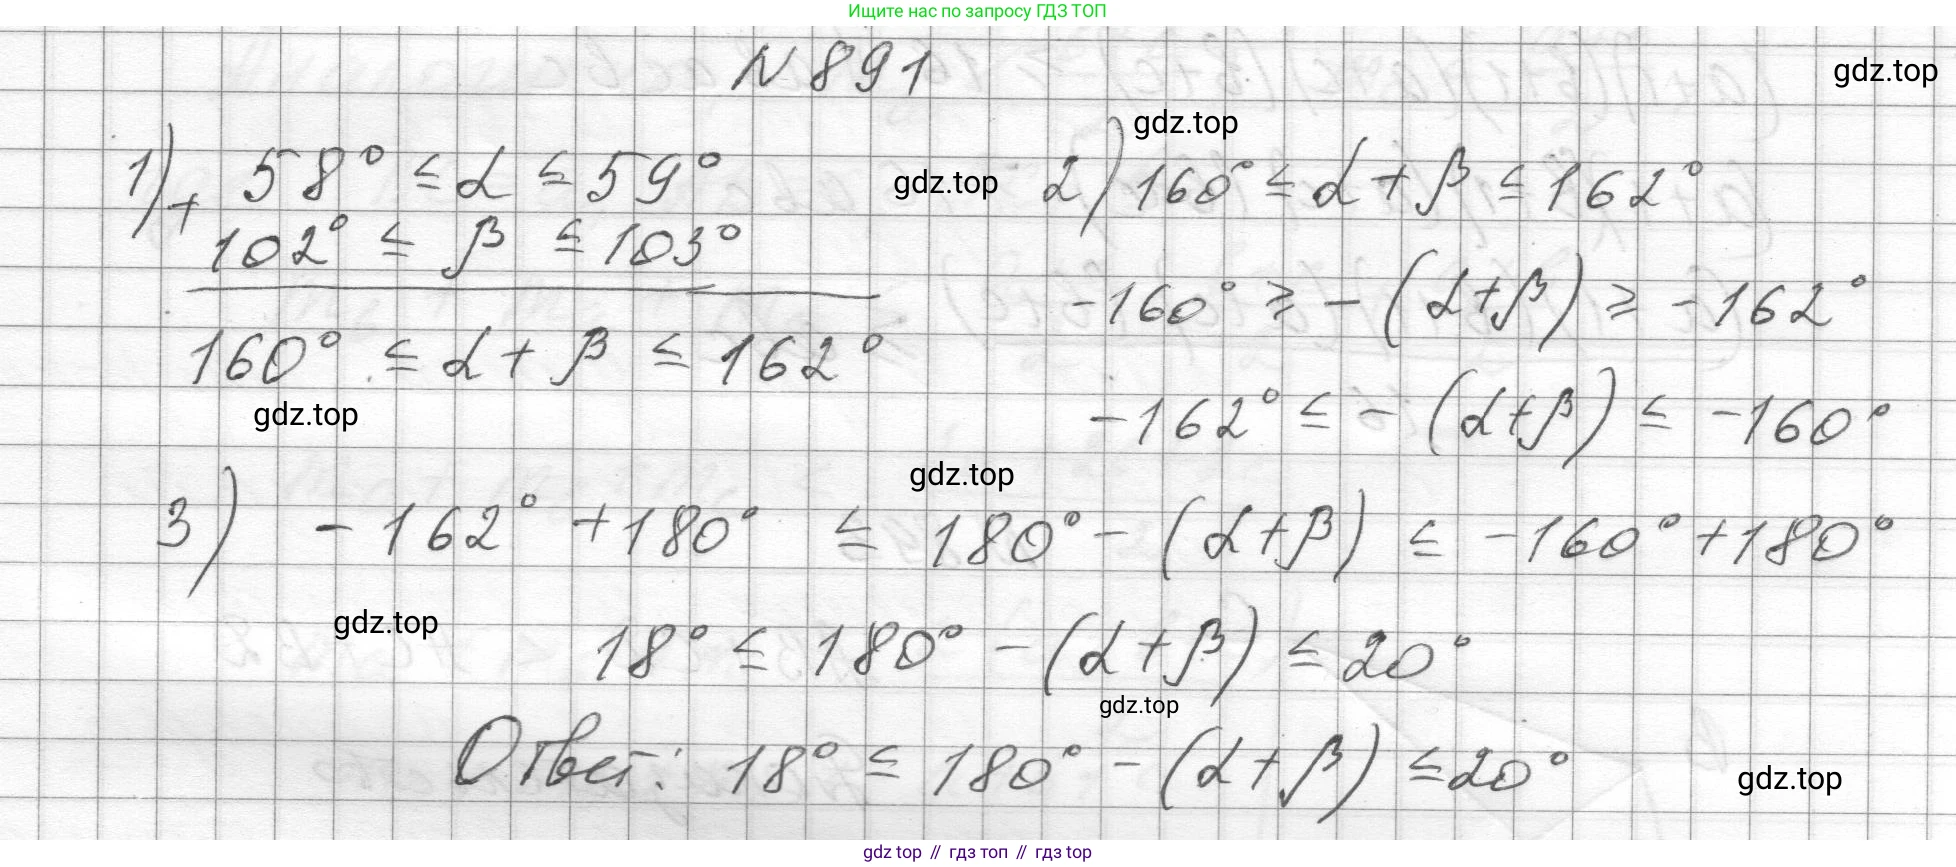 Ищите нас по запросу ГДЗ ТОП
N 891
gdz.top
gdz.top
1) + 58° ≤ α ≤ 59°
102° ≤ β ≤ 103°
160° ≤ α + β ≤ 162°
gdz.top
gdz.top
2) 160° ≤ α + β ≤ 162°
-160° ≥ - (α+β) ≥ -162°
-162° ≤ - (α+β) ≤ -160°
gdz.top
3) -162° + 180° ≤ 180° - (α+β) ≤ -160° + 180°
gdz.top
18° ≤ 180° - (α+β) ≤ 20°
gdz.top
Ответ: 18° ≤ 180° - (α+β) ≤ 20°
gdz.top
gdz top // гдз топ // гдз top